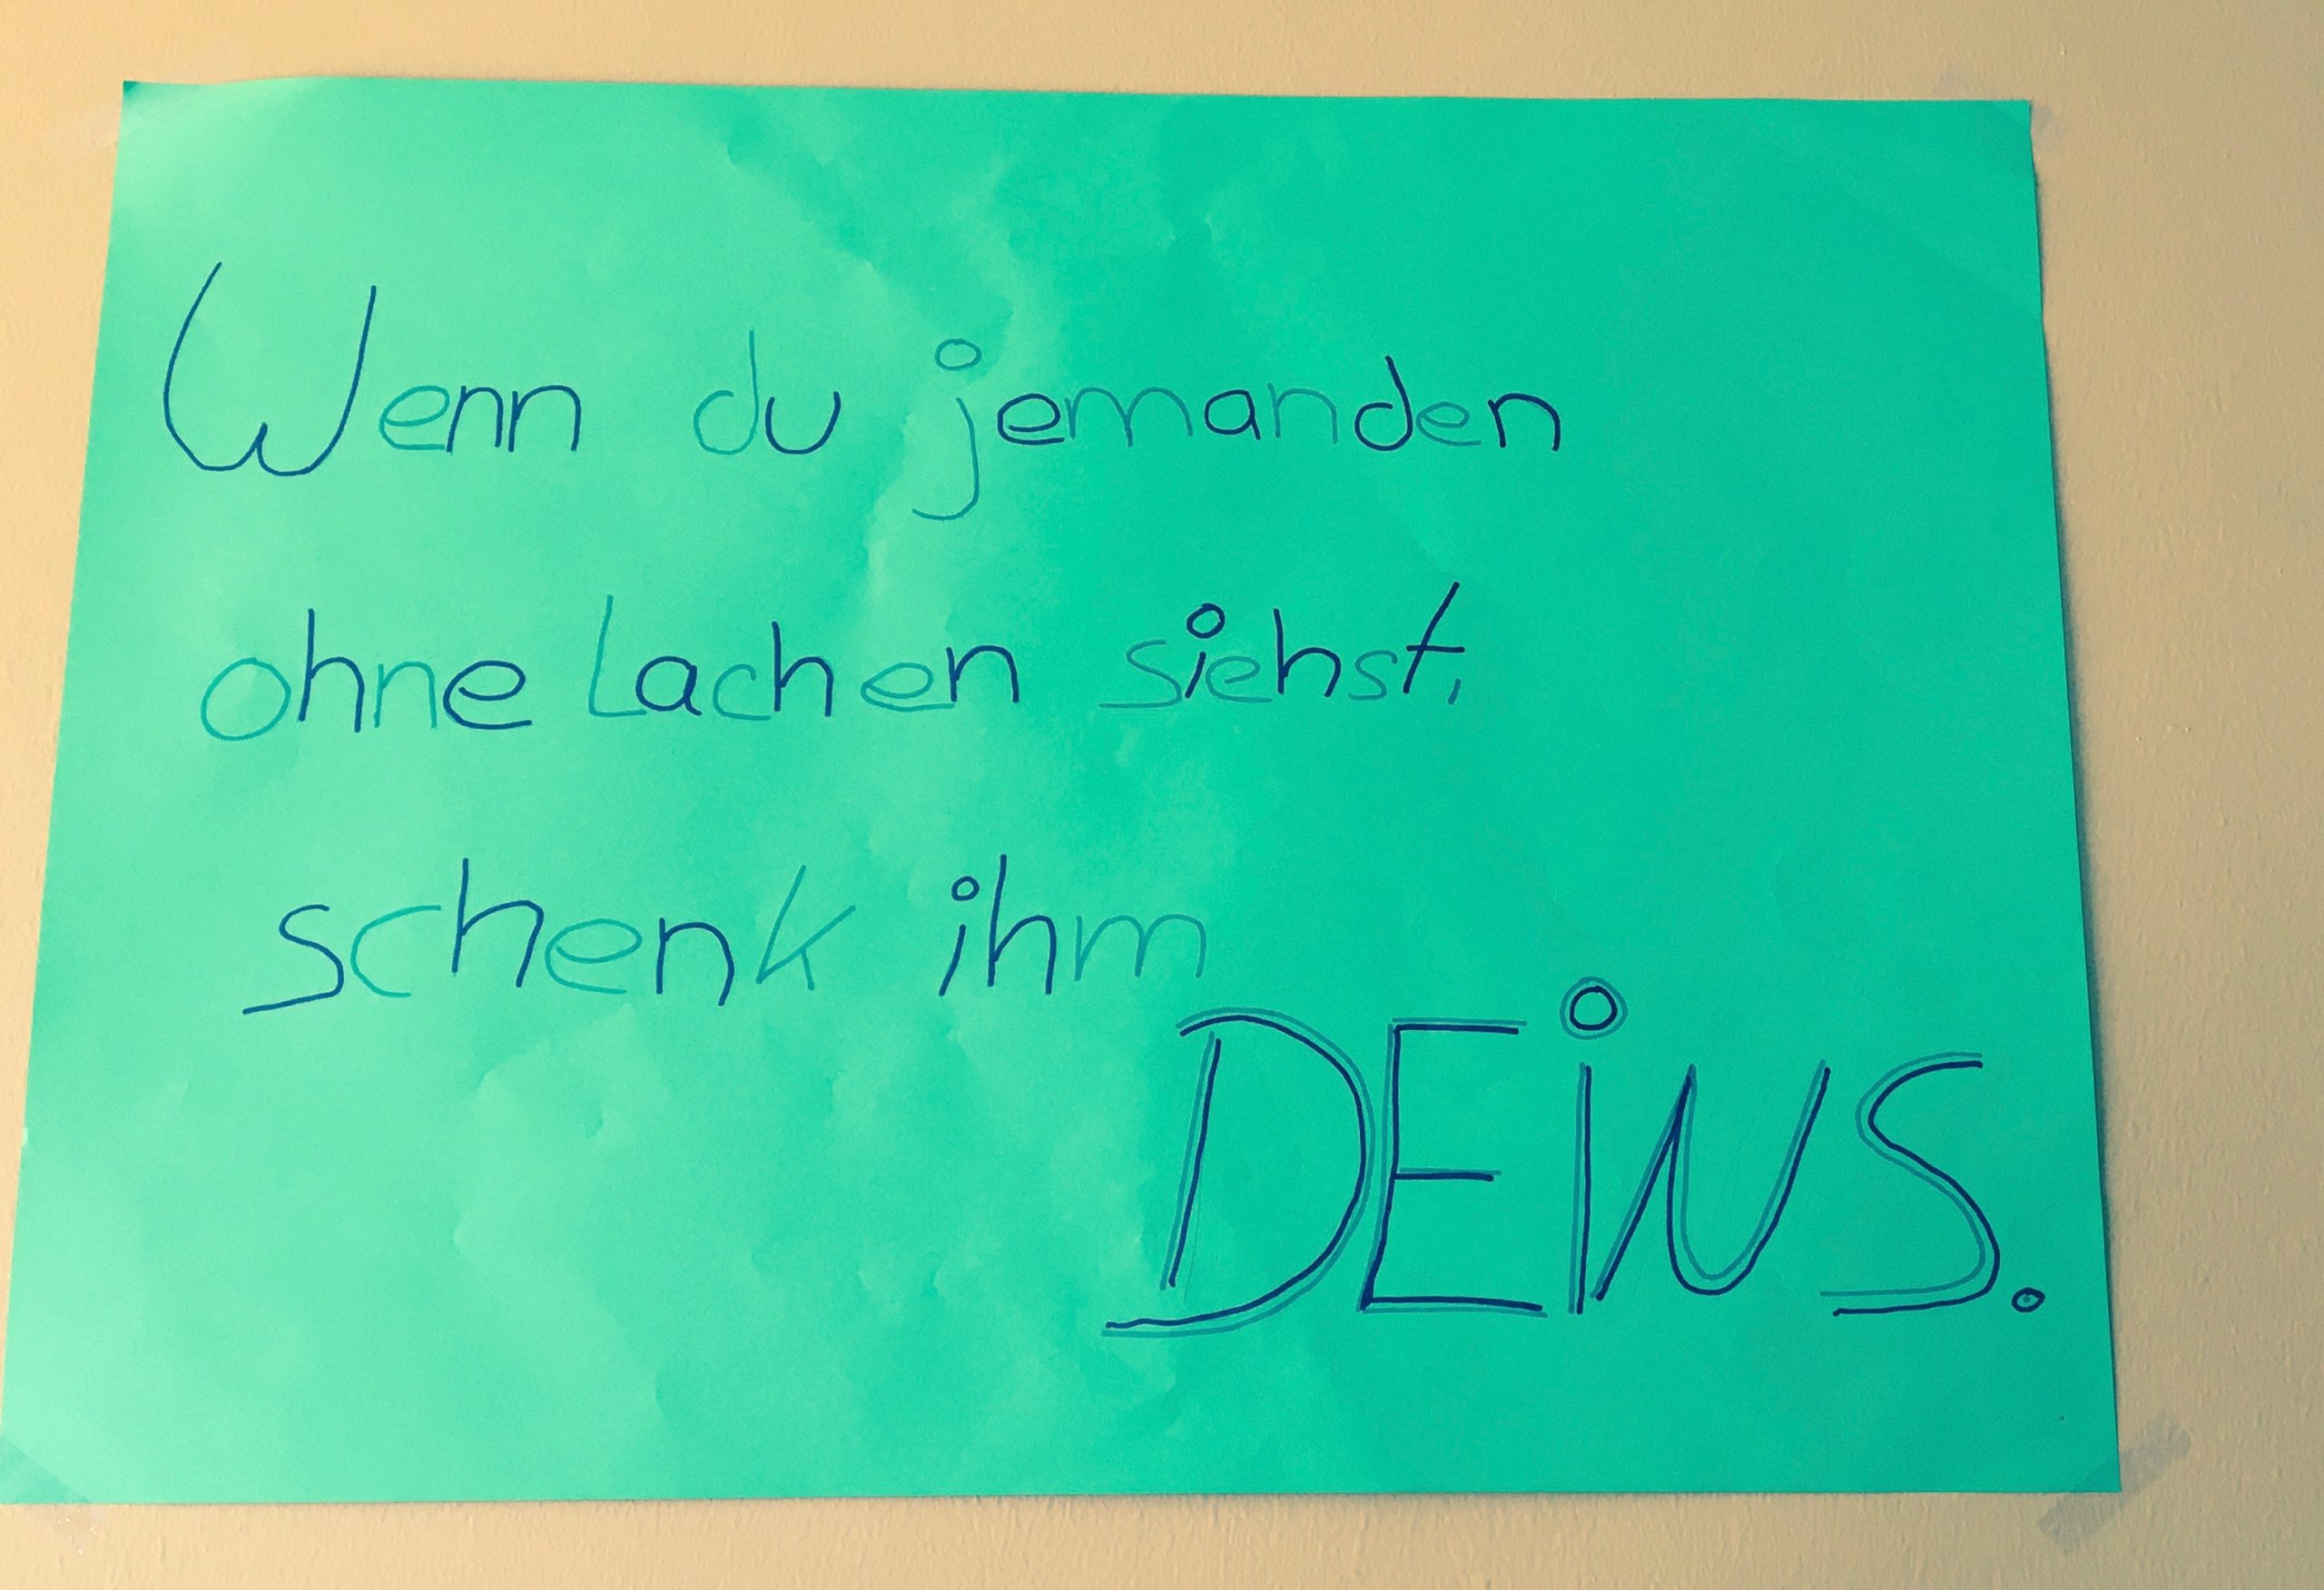 Wenn du jemanden
ohne Lachen siehst,
schenk ihm
DEiNS.